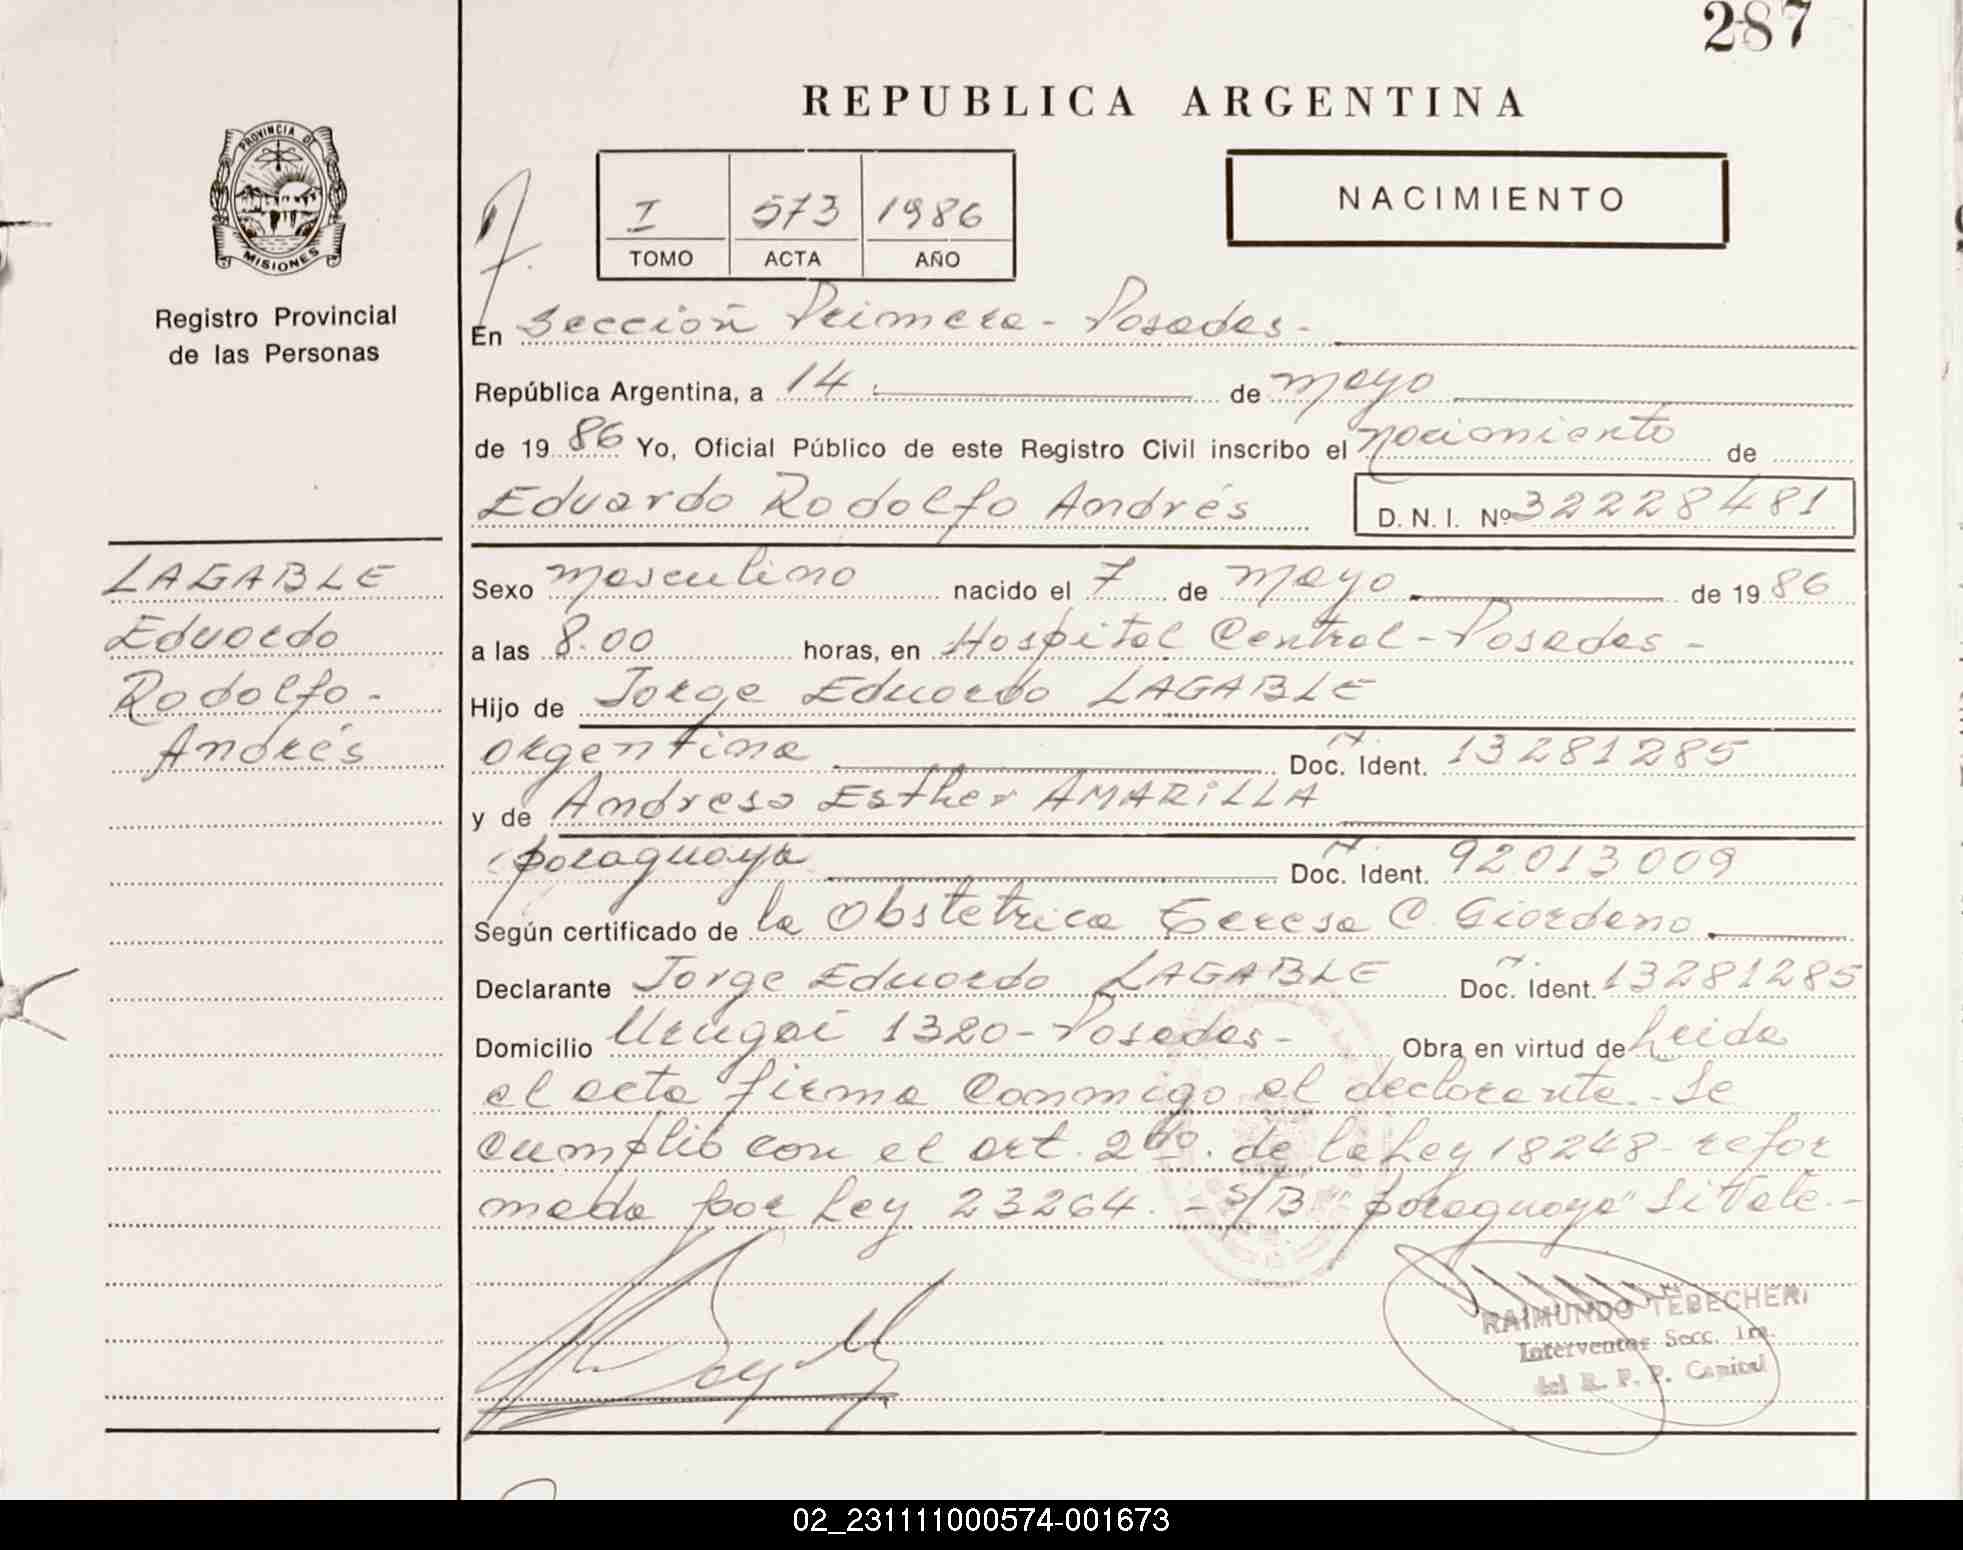 287
REPUBLICA ARGENTINA
PROVINCIA DE
MISIONES
Registro Provincial
de las Personas
I 573 1986
TOMO ACTA AÑO
NACIMIENTO
En Sección Primera - Posadas -
República Argentina, a 14 de mayo
de 19 86 Yo, Oficial Público de este Registro Civil inscribo el nacimiento de
Eduardo Rodolfo Andrés D.N.I. Nº 32228481
LAGABLE
Eduardo
Rodolfo -
Andrés
Sexo masculino nacido el 7 de mayo de 19 86
a las 8.00 horas, en Hospital Central - Posadas -
Hijo de Jorge Eduardo LAGABLE
argentina Doc. Ident. 13281285
y de Andresa Esther AMARILLA
paraguaya Doc. Ident. 92013009
Según certificado de la Obstetrica Teresa C. Giordano
Declarante Jorge Eduardo LAGABLE Doc. Ident. 13281285
Domicilio Urugai 1320 - Posadas - Obra en virtud de Leida
el acta firma Conmigo el declarante. - Se
cumplió con el art. 2do. de la Ley 18248 - refor
mada por Ley 23264. - S/B "paraguaya" Si Vale. -
RAIMUNDO TEBECHERI
Interventor Secc. 1ra.
del R. P. P. Capital
02_231111000574-001673